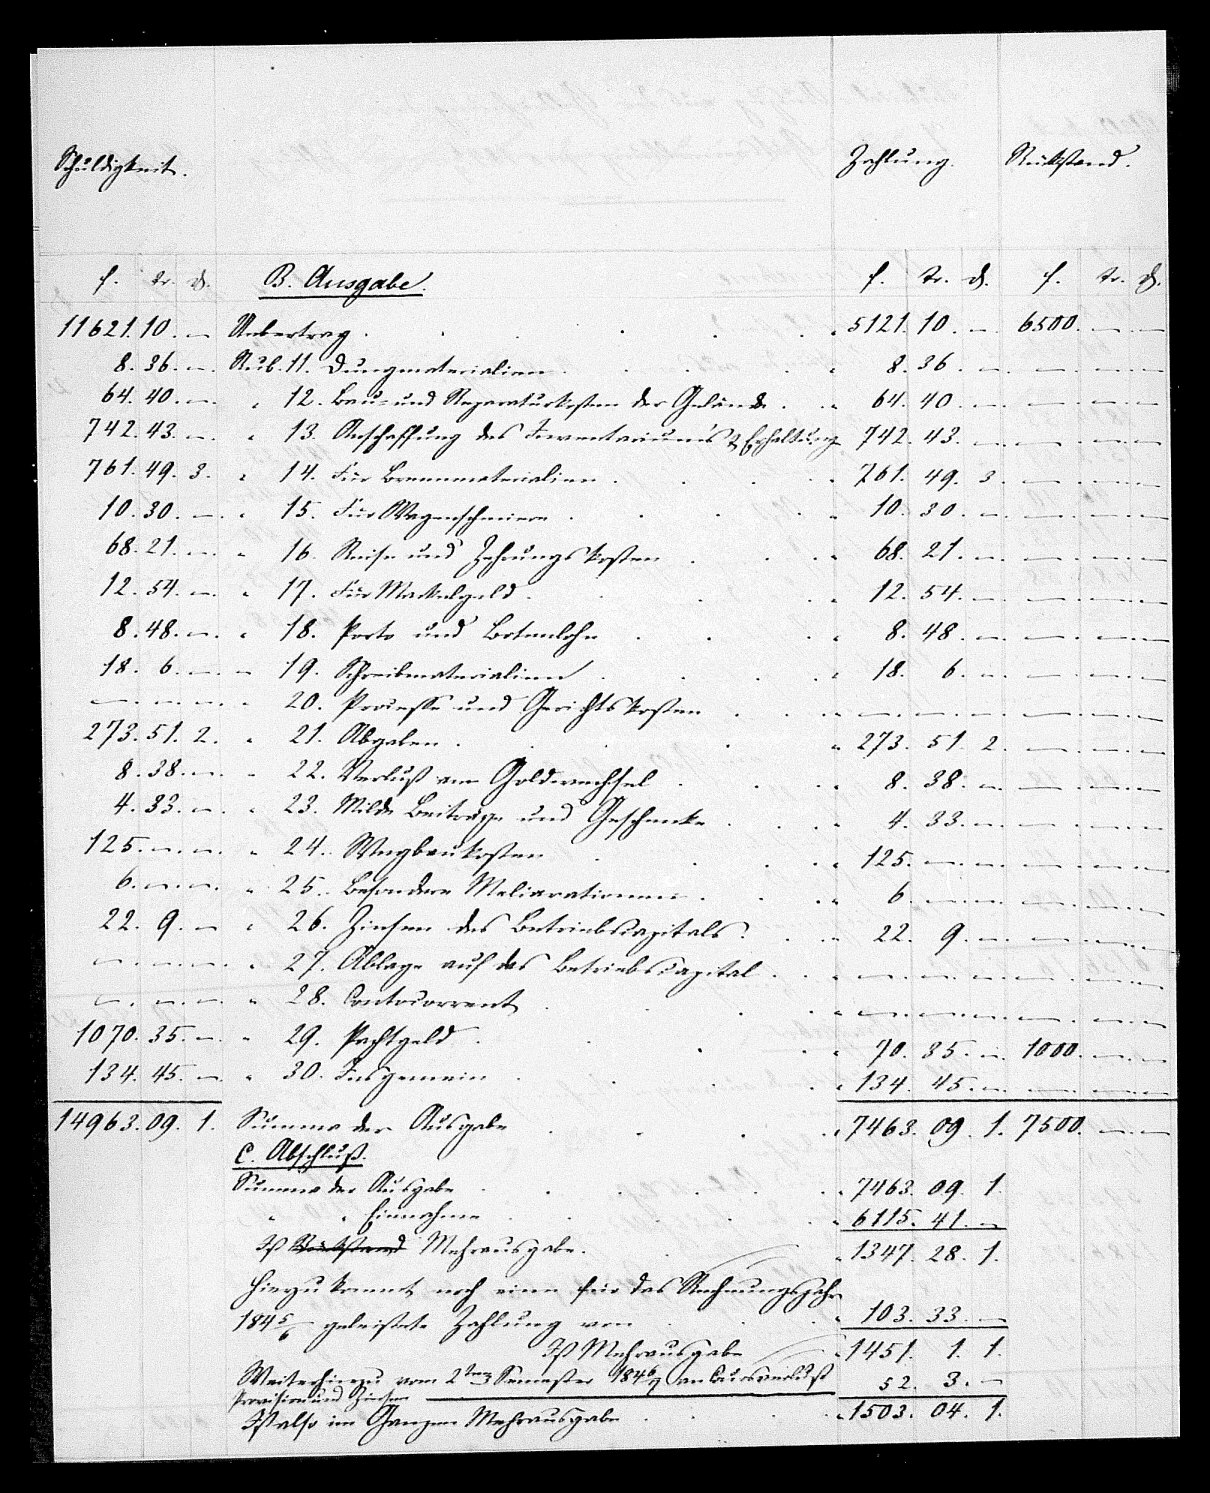 Schuldigkeit. Zahlung. Rückstand.
f. kr. d. B. Ausgabe. f. kr. d. f. kr. d.
11621. 10. — Uebertrag . . . . 5121. 10. — 6500. — —
8. 36. — Rub. 11. Dungmaterialien . . . . 8. 36. — — — —
64. 40. — " 12. Bau- und Reparaturkosten der Gebäude . " 64. 40. — — — —
742. 43. — " 13. Anschaffung des Inventariums & Erhaltung 742. 43. — — — —
761. 49. 3. " 14. Für Brennmaterialien . . . . 761. 49. 3. — — —
10. 30. — " 15. Für Wagenschmiere . . . . 10. 30. — — — —
68. 21. — " 16. Reise und Zehrungskosten . . . 68. 21. — — — —
12. 54. — " 17. Für Mackelgeld . . . . 12. 54. — — — —
8. 48. — " 18. Porto und Botenlohn . . . 8. 48. — — — —
18. 6. — " 19. Schreibmaterialien . . . . 18. 6. — — — —
— — — " 20. Processe und Gerichtskosten . . . — — — — — —
273. 51. 2. " 21. Abgaben . . . . " 273. 51. 2. — — —
8. 38. — " 22. Verlust am Goldwechsel . . . 8. 38. — — — —
4. 33. — " 23. Milde Beiträge und Geschenke . . . 4. 33. — — — —
125. — — " 24. Wegbaukosten . . . . 125. — — — — —
6. — — " 25. Besondere Meliorationen . . . 6. — — — — —
22. 9. — " 26. Zinsen des Betriebscapitals . . . 22. 9. — — — —
— — — " 27. Ablage auf das Betriebscapital . . . — — — — — —
— — — " 28. Contocorrent . . . . — — — — — —
1070. 35. — " 29. Pachtgeld . . . . 70. 35. — 1000. — —
134. 45. — " 30. Insgemein . . . . 134. 45. — — — —
14963. 09. 1. Summa der Ausgabe . . . 7463. 09. 1. 7500. — —
C. Abschluß.
Summa der Ausgabe . . . . 7463. 09. 1.
" " Einnahme . . . . 6115. 41. —
Ist Rückstand Mehrausgabe . . . 1347. 28. 1.
Hiezu kommt noch eine für das Rechnungsjahr
1845/6 geleistete Zahlung von . . . 103. 33. —
Ist Mehrausgabe 1451. 1. 1.
Weiter hiezu vom 2ten Semester 1846/7 an Coursverlust
Provision und Zinsen 52. 3. —
Ist also im Ganzen Mehrausgabe . . . 1503. 04. 1.